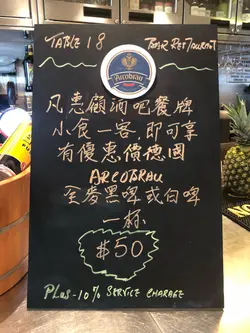 TABLE 18 BAR RESTAURANT
Arcobräu
凡惠顧酒吧餐牌
小食一客，即可享
有優惠價德國
ARCOBRAU
至麥黑啤或白啤
一杯
$50
PLUS - 10% SERVICE CHARAGE